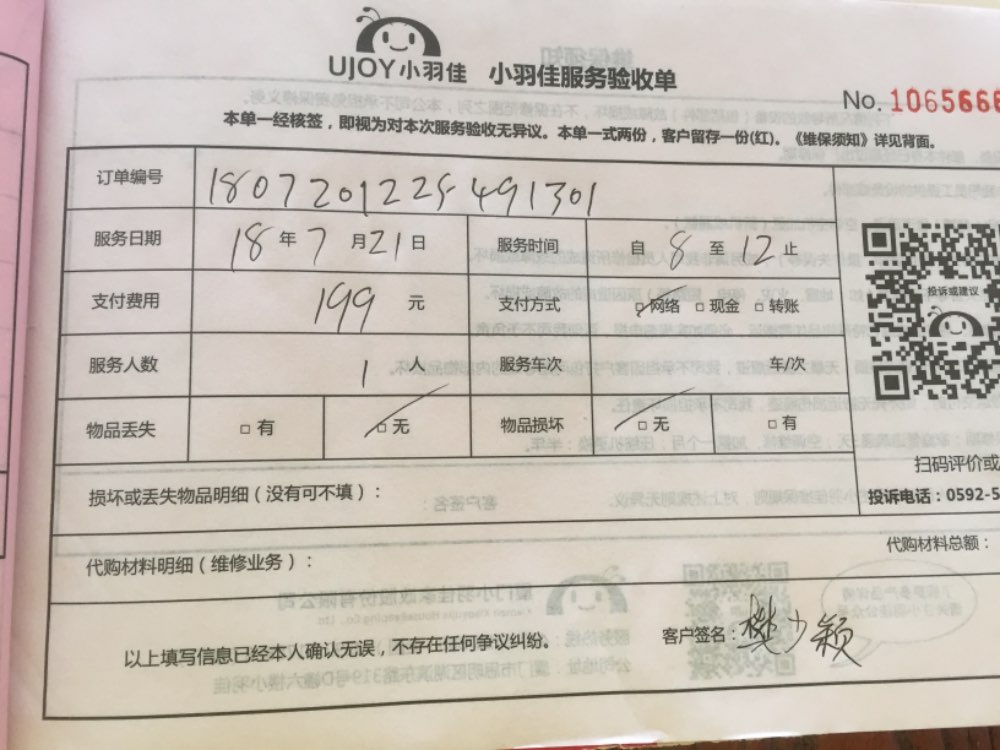 UJOY小羽佳 小羽佳服务验收单
No. 1065666
本单一经核签，即视为对本次服务验收无异议。本单一式两份，客户留存一份(红)。《维保须知》详见背面。
订单编号 1807201225491301
服务日期 18年7月21日 服务时间 自8至12止
支付费用 199元 支付方式 网络 现金 转账
投诉或建议
服务人数 1人 服务车次 车/次
物品丢失 有 无 物品损坏 无 有
扫码评价或
投诉电话：0592-5
损坏或丢失物品明细（没有可不填）：
代购材料明细（维修业务）： 代购材料总额：
以上填写信息已经本人确认无误，不存在任何争议纠纷。 客户签名：樊少颖